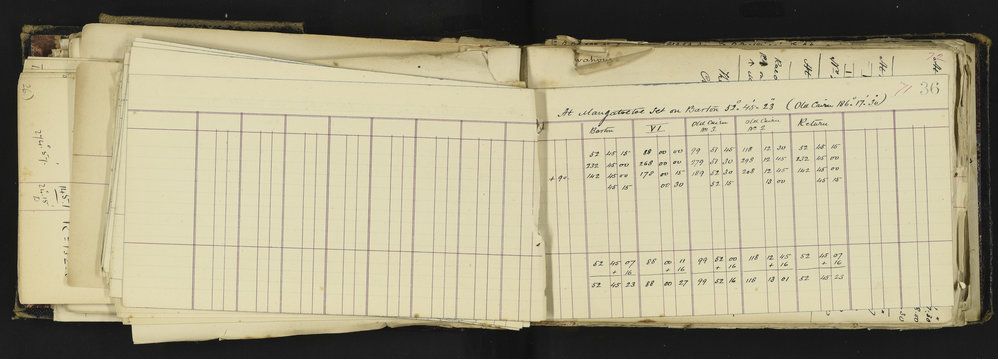 36
At Mangatoetoe Set on Barton 52° 45' 23" (Old Cairn 186° 17' 30")
Barton VI Old Cairn No 3 Old Cairn No 2 Return
52 45 15 88 00 00 99 51 45 118 12 30 52 45 15
232 45 00 268 00 00 279 51 30 298 12 45 232 45 00
+ 90 142 45 00 178 00 15 189 52 30 208 12 45 142 45 00
45 15 00 30 52 15 13 00 45 15
52 45 07 88 00 11 99 52 00 118 12 45 52 45 07
+ 16 + 16 + 16 + 16 + 16
52 45 23 88 00 27 99 52 16 118 13 01 52 45 23